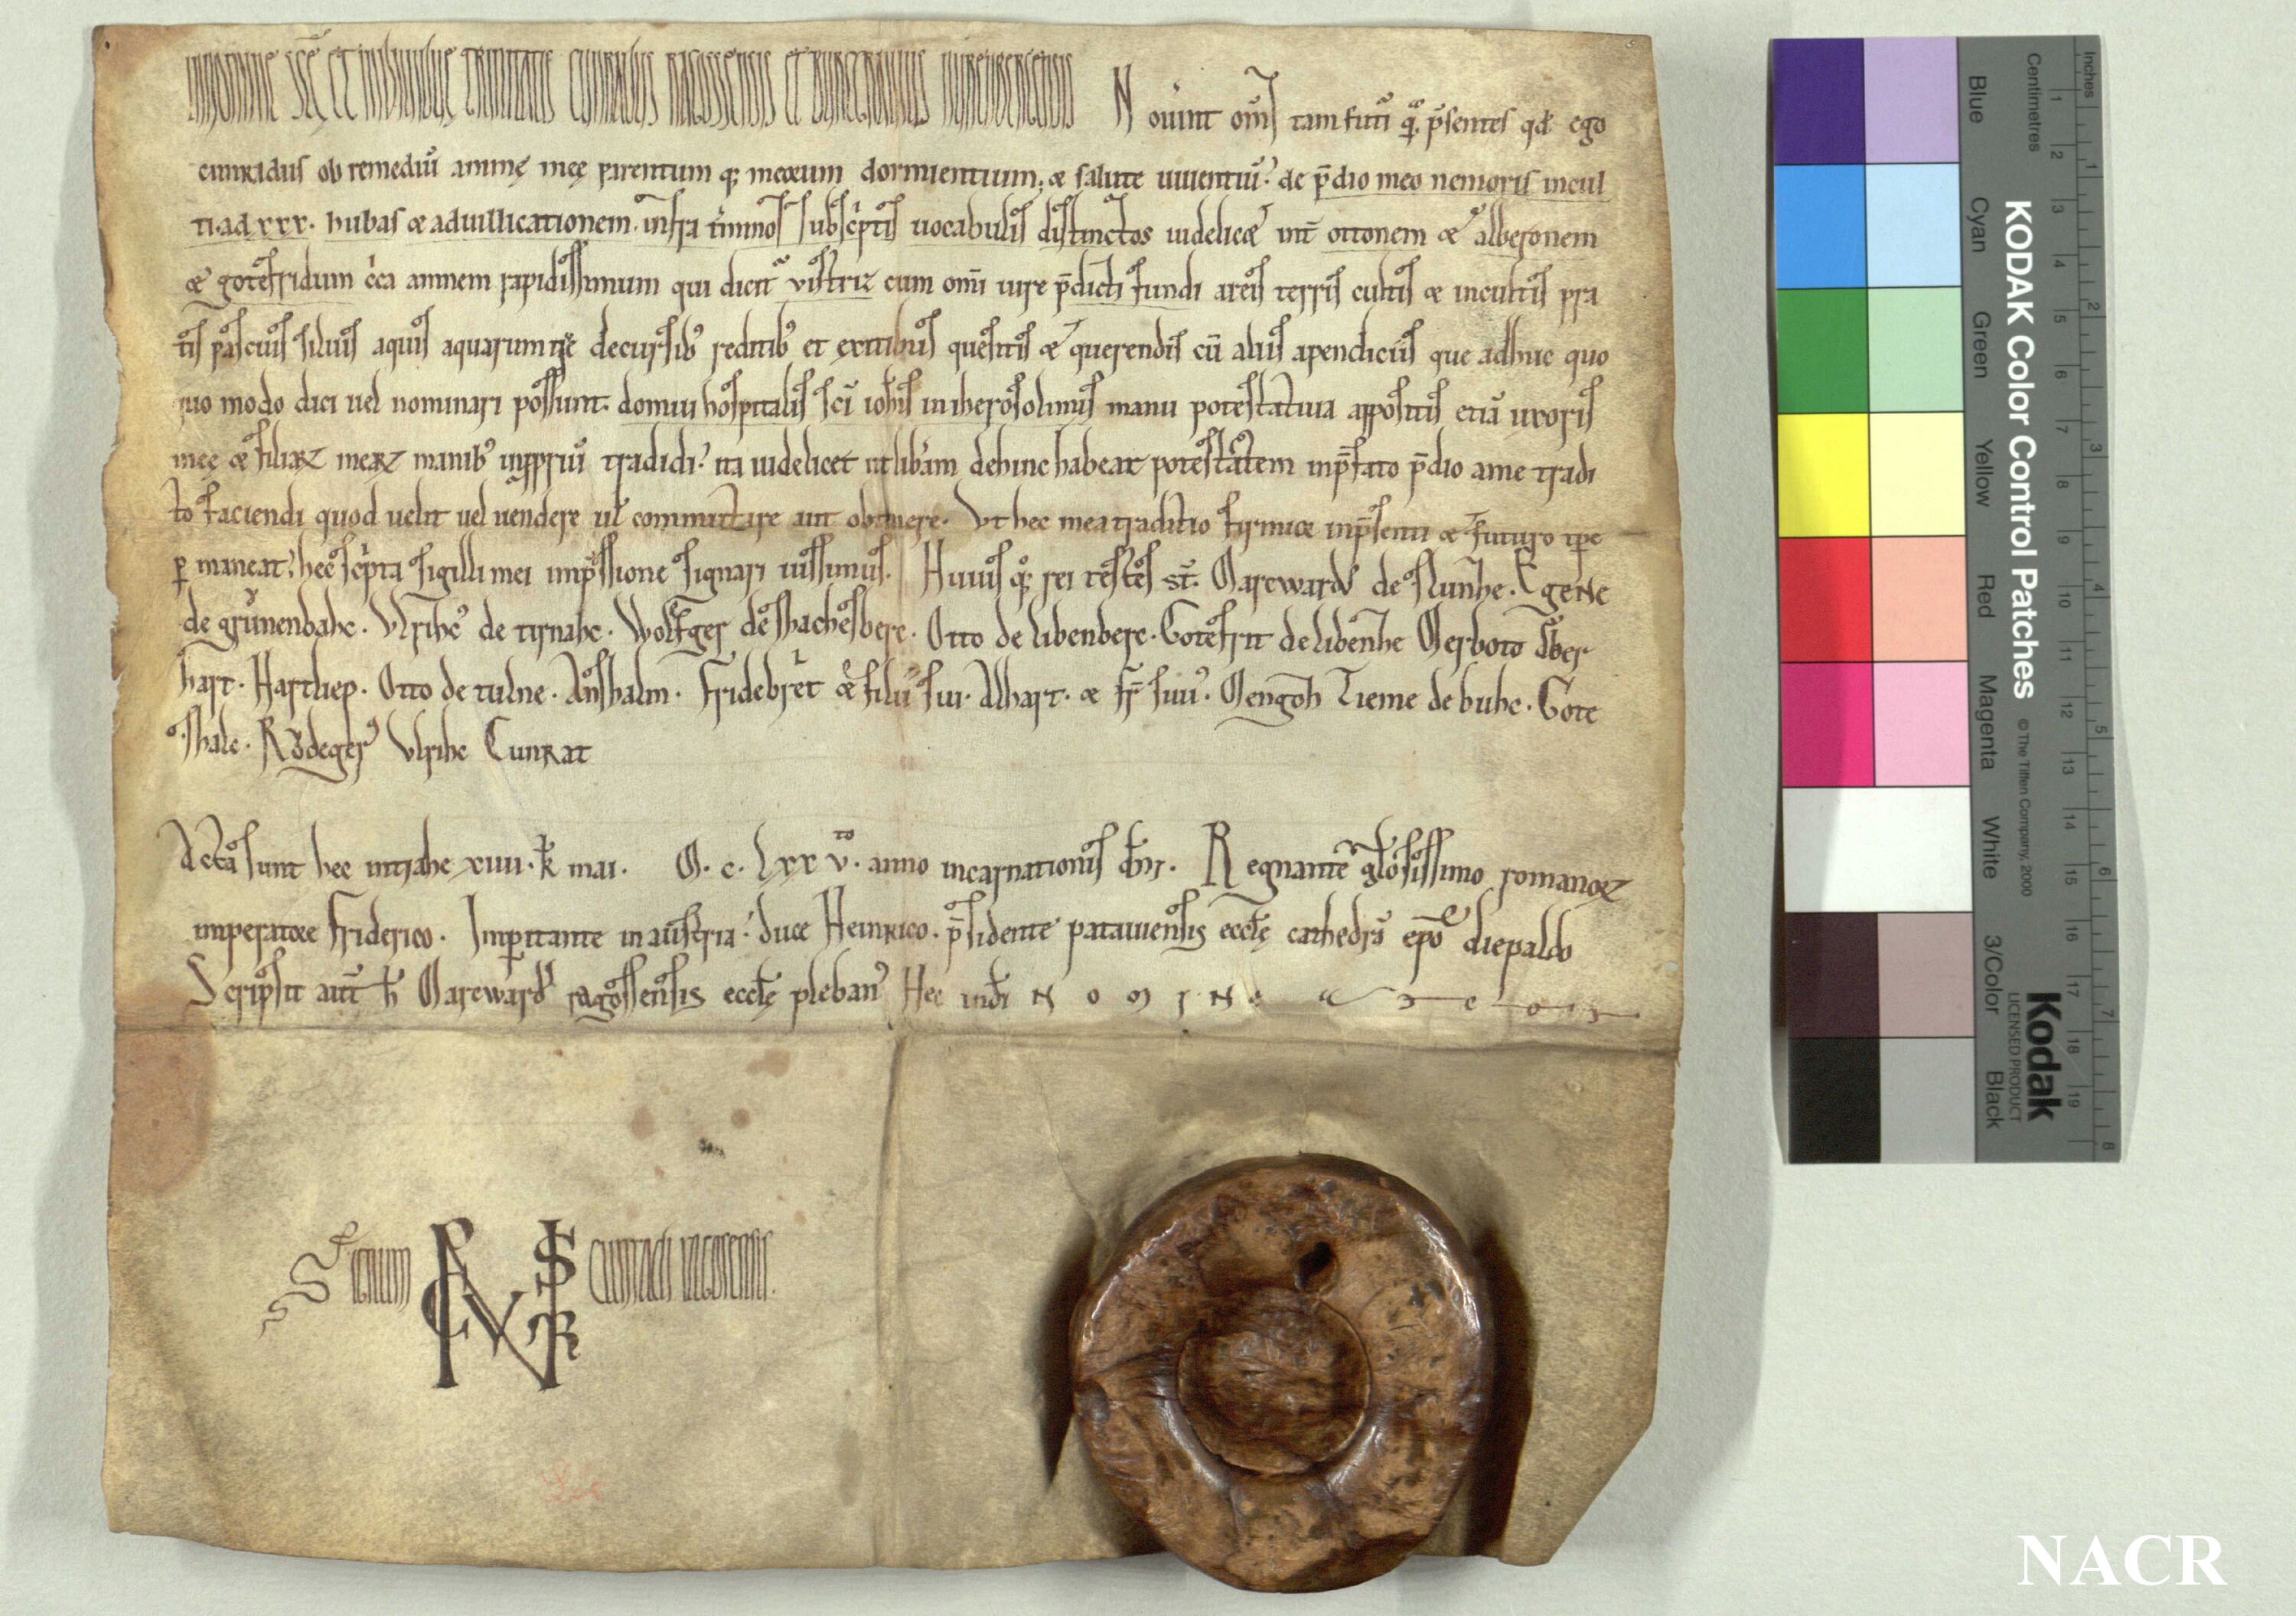 IN NOMINE SCĘ ET INDIVIDUE TRINITATIS CUNRADUS RAGOSSENSIS ET BURCGRAVIUS NURENBERGENSIS Nouint om̄s tam futuri q̄ p̄sentes qd̄ ego
cunradus ob remediū animę meę parentum q; meorum dormientium, & salute uiuentiū. de p̄dio meo nemoris incul
ti ad xxx. hubas & aduillicationem infra t̄minos subsc̄ptis uocabulis distinctos uidelic& int̄ ottonem & alberonem
& gotefridum c̄ca amnem rapidissimum qui dicit̄ vistriz cum om̄i iure p̄dicti fundi areis terris cultis & incultis pra
tis pascuis siluis aquis aquarumue decursib; reditib; et exitibus quesitis & querendis cū aliis apendiciis que adhuc quo
quo modo dici uel nominari possunt. domui hospitalis sc̄i ioh̄is in iherosolimis manu potestatiua appositis etiā uxoris
meę & filiarz mearz manib; in ppriū tradidi. ita uidelicet ut lib̄am dehinc habeat potestatem in p̄fato p̄dio a me tradi
to faciendi quod uelit uel uendere ul̄ commutare aut obtinere. Vt hec mea traditio firmior in p̄senti & futuro tpe
p maneat, hec sc̄pta sigilli mei imp̄ssione signari iussimus. Huius q; rei testes st̄. Marcward de slun̄he. Egene
de grůnenbahc. Vlrihc de tirnahc. Wolfger de shachesberc. Otto de libenberc. Gotefrit de liben̄he Merboto Eber
hart. Hartliep. Otto de tulne. Anshalm. Fridebret & filii sui. Alhart. & fr̄ suus. Mengoth Tieme de buhc. Gote
shalc. Růdeger Vlrihc Cunrat
Acta sunt hec in trahc xiiii. k̄ mai. M. c. Lxx v.to anno incarnationis dn̄i. Regnante gl̄osissimo romanorz
imperatore Friderico. Imperitante in austria. duce Heinrico. p̄sidente patauiensis eccl̄ę cathedra ep̄o diepaldo
Scripsit aut̄ h̄ Marcward ragossensis eccl̄ę pleban; Hec in dn̄i NOMINE
SIGNUM CUNRADI RAGOSENSIS.
KODAK Color Control Patches © The Tiffen Company, 2000
Kodak
LICENSED PRODUCT
Blue Cyan Green Yellow Red Magenta White 3/Color Black
Centimetres 1 2 3 4 5 6 7 8 9 10 11 12 13 14 15 16 17 18 19
Inches 1 2 3 4 5 6 7 8
NACR